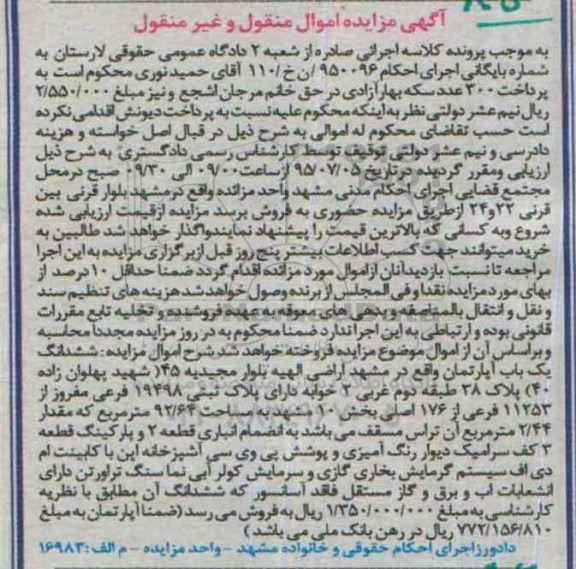 آگهی مزایده اموال منقول و غیر منقول
به موجب پرونده کلاسه اجرائی صادره از شعبه ۲ دادگاه عمومی حقوقی لارستان به
شماره بایگانی اجرای احکام ۹۵۰۰۹۶ /ن خ /۱۱۰ آقای حمید نوری محکوم است به
پرداخت ۳۰۰ عدد سکه بهار آزادی در حق خانم مرجان اشجع و نیز مبلغ ۲/۵۵۰/۰۰۰
ریال نیم عشر دولتی نظر به اینکه محکوم علیه نسبت به پرداخت دیونش اقدامی نکرده
است حسب تقاضای محکوم له اموالی به شرح ذیل در قبال اصل خواسته و هزینه
دادرسی و نیم عشر دولتی توقیف توسط کارشناس رسمی دادگستری به شرح ذیل
ارزیابی ومقرر گردیده در تاریخ ۹۵/۰۷/۰۵ از ساعت ۰۹/۰۰ الی ۰۹/۳۰ صبح در محل
مجتمع قضایی اجرای احکام مدنی مشهد واحد مزائده واقع در مشهد بلوار قرنی بین
قرنی ۲۲و۲۴ از طریق مزایده حضوری به فروش برسد مزایده از قیمت ارزیابی شده
شروع وبه کسانی که بالاترین قیمت را پیشنهاد نمایند واگذار خواهد شد طالبین به
خرید میتوانند جهت کسب اطلاعات بیشتر پنج روز قبل از برگزاری مزایده به این اجرا
مراجعه تا نسبت بازدید آنان از اموال مورد مزائده اقدام گردد ضمنا حداقل ۱۰ درصد از
بهای مورد مزایده نقدا و فی المجلس از برنده وصول خواهد شد هزینه های تنظیم سند
و نقل و انتقال بالمناصفه و بدهی های معوقه به عهده فروشنده و تخلیه تابع مقررات
قانونی بوده و ارتباطی به این اجرا ندارد ضمنا محکوم به در روز مزایده مجددا محاسبه
و براساس آن از اموال موضوع مزایده فروخته خواهد شد شرح اموال مزایده : ششدانگ
یک باب آپارتمان واقع در مشهد اراضی الهیه بلوار مجیدیه ۴۵( شهید پهلوان زاده
۴۰) پلاک ۳۸ طبقه دوم غربی ۲ خوابه دارای پلاک ثبتی ۱۹۴۹۸ فرعی مفروز از
۱۱۲۵۳ فرعی از ۱۷۶ اصلی بخش ۱۰ مشهد به مساحت ۹۲/۶۴ مترمربع که مقدار
۲/۴۴ مترمربع آن تراس مسقف می باشد به انضمام انباری قطعه ۲ و پارکینگ قطعه
۳ کف سرامیک دیوار رنگ آمیزی و پوشش پی وی سی آشپزخانه اپن با کابینت ام
دی اف سیستم گرمایش بخاری گازی و سرمایش کولر آبی نما سنگ تراورتن دارای
انشعابات آب و برق و گاز مستقل فاقد آسانسور که ششدانگ آن مطابق با نظریه
کارشناسی به مبلغ ۱/۳۵۰/۰۰۰/۰۰۰ ریال به فروش می رسد (ضمنا آپارتمان به مبلغ
۷۷۲/۱۵۶/۸۱۰ ریال در رهن بانک ملی می باشد )
دادورز اجرای احکام حقوقی و خانواده مشهد - واحد مزایده - م الف : ۱۶۹۸۳